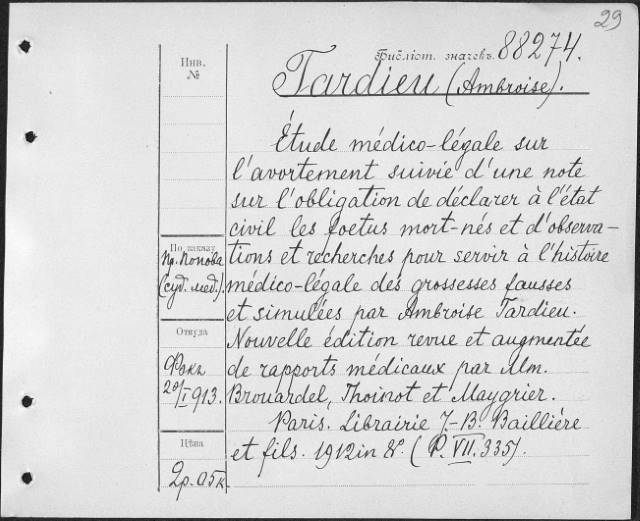 29
Библіот. значекъ. 88274.
Tardieu (Ambroise).
Étude médico-légale sur
l'avortement suivie d'une note
sur l'obligation de déclarer à l'état
civil les foetus mort-nés et d'observa-
tions et recherches pour servir à l'histoire
médico-légale des grossesses fausses
et simulées par Ambroise Tardieu.
Nouvelle édition revue et augmentée
de rapports médicaux par Mm.
Brouardel, Thoinot et Maygrier.
Paris. Librairie J.-B. Baillière
et fils. 1912 in 8º. (P. VII. 335).
Инв.
№
По заказу
Пр. Попова
(суд. мед.).
Откуда
Фокъ
20/I 913.
Цѣна
2р. 05к.